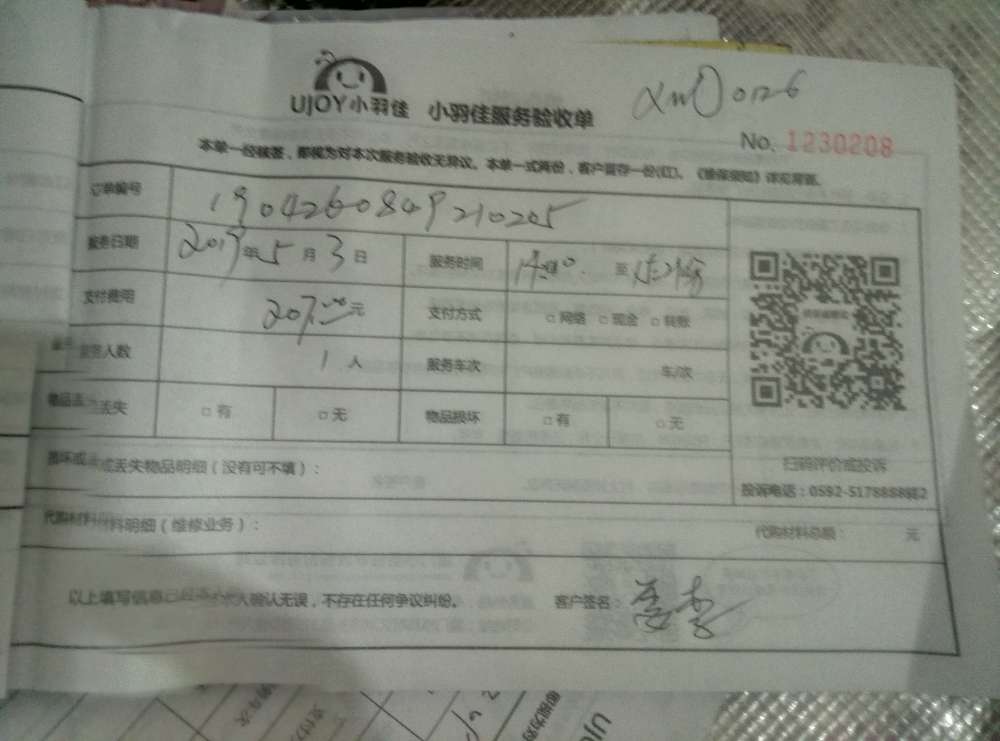 UJOY小羽佳 小羽佳服务验收单
No. 1230208
本单一经核签,即视为对本次服务验收无异议。本单一式两份,客户留存一份(红)。《维保须知》详见背面。
订单编号 1904260849210205
服务日期 2019年5月3日 服务时间 至
支付费用 207.00元 支付方式 □网络 □现金 □转账
人数 1人 服务车次 车/次
物品丢失 □有 □无 物品损坏 □有 □无
扫码评价或投诉
损坏或丢失物品明细(没有可不填):
投诉电话:0592-5178888转2
代购材料明细(维修业务): 代购材料总额: 元
以上填写信息 确认无误,不存在任何争议纠纷。 客户签名: